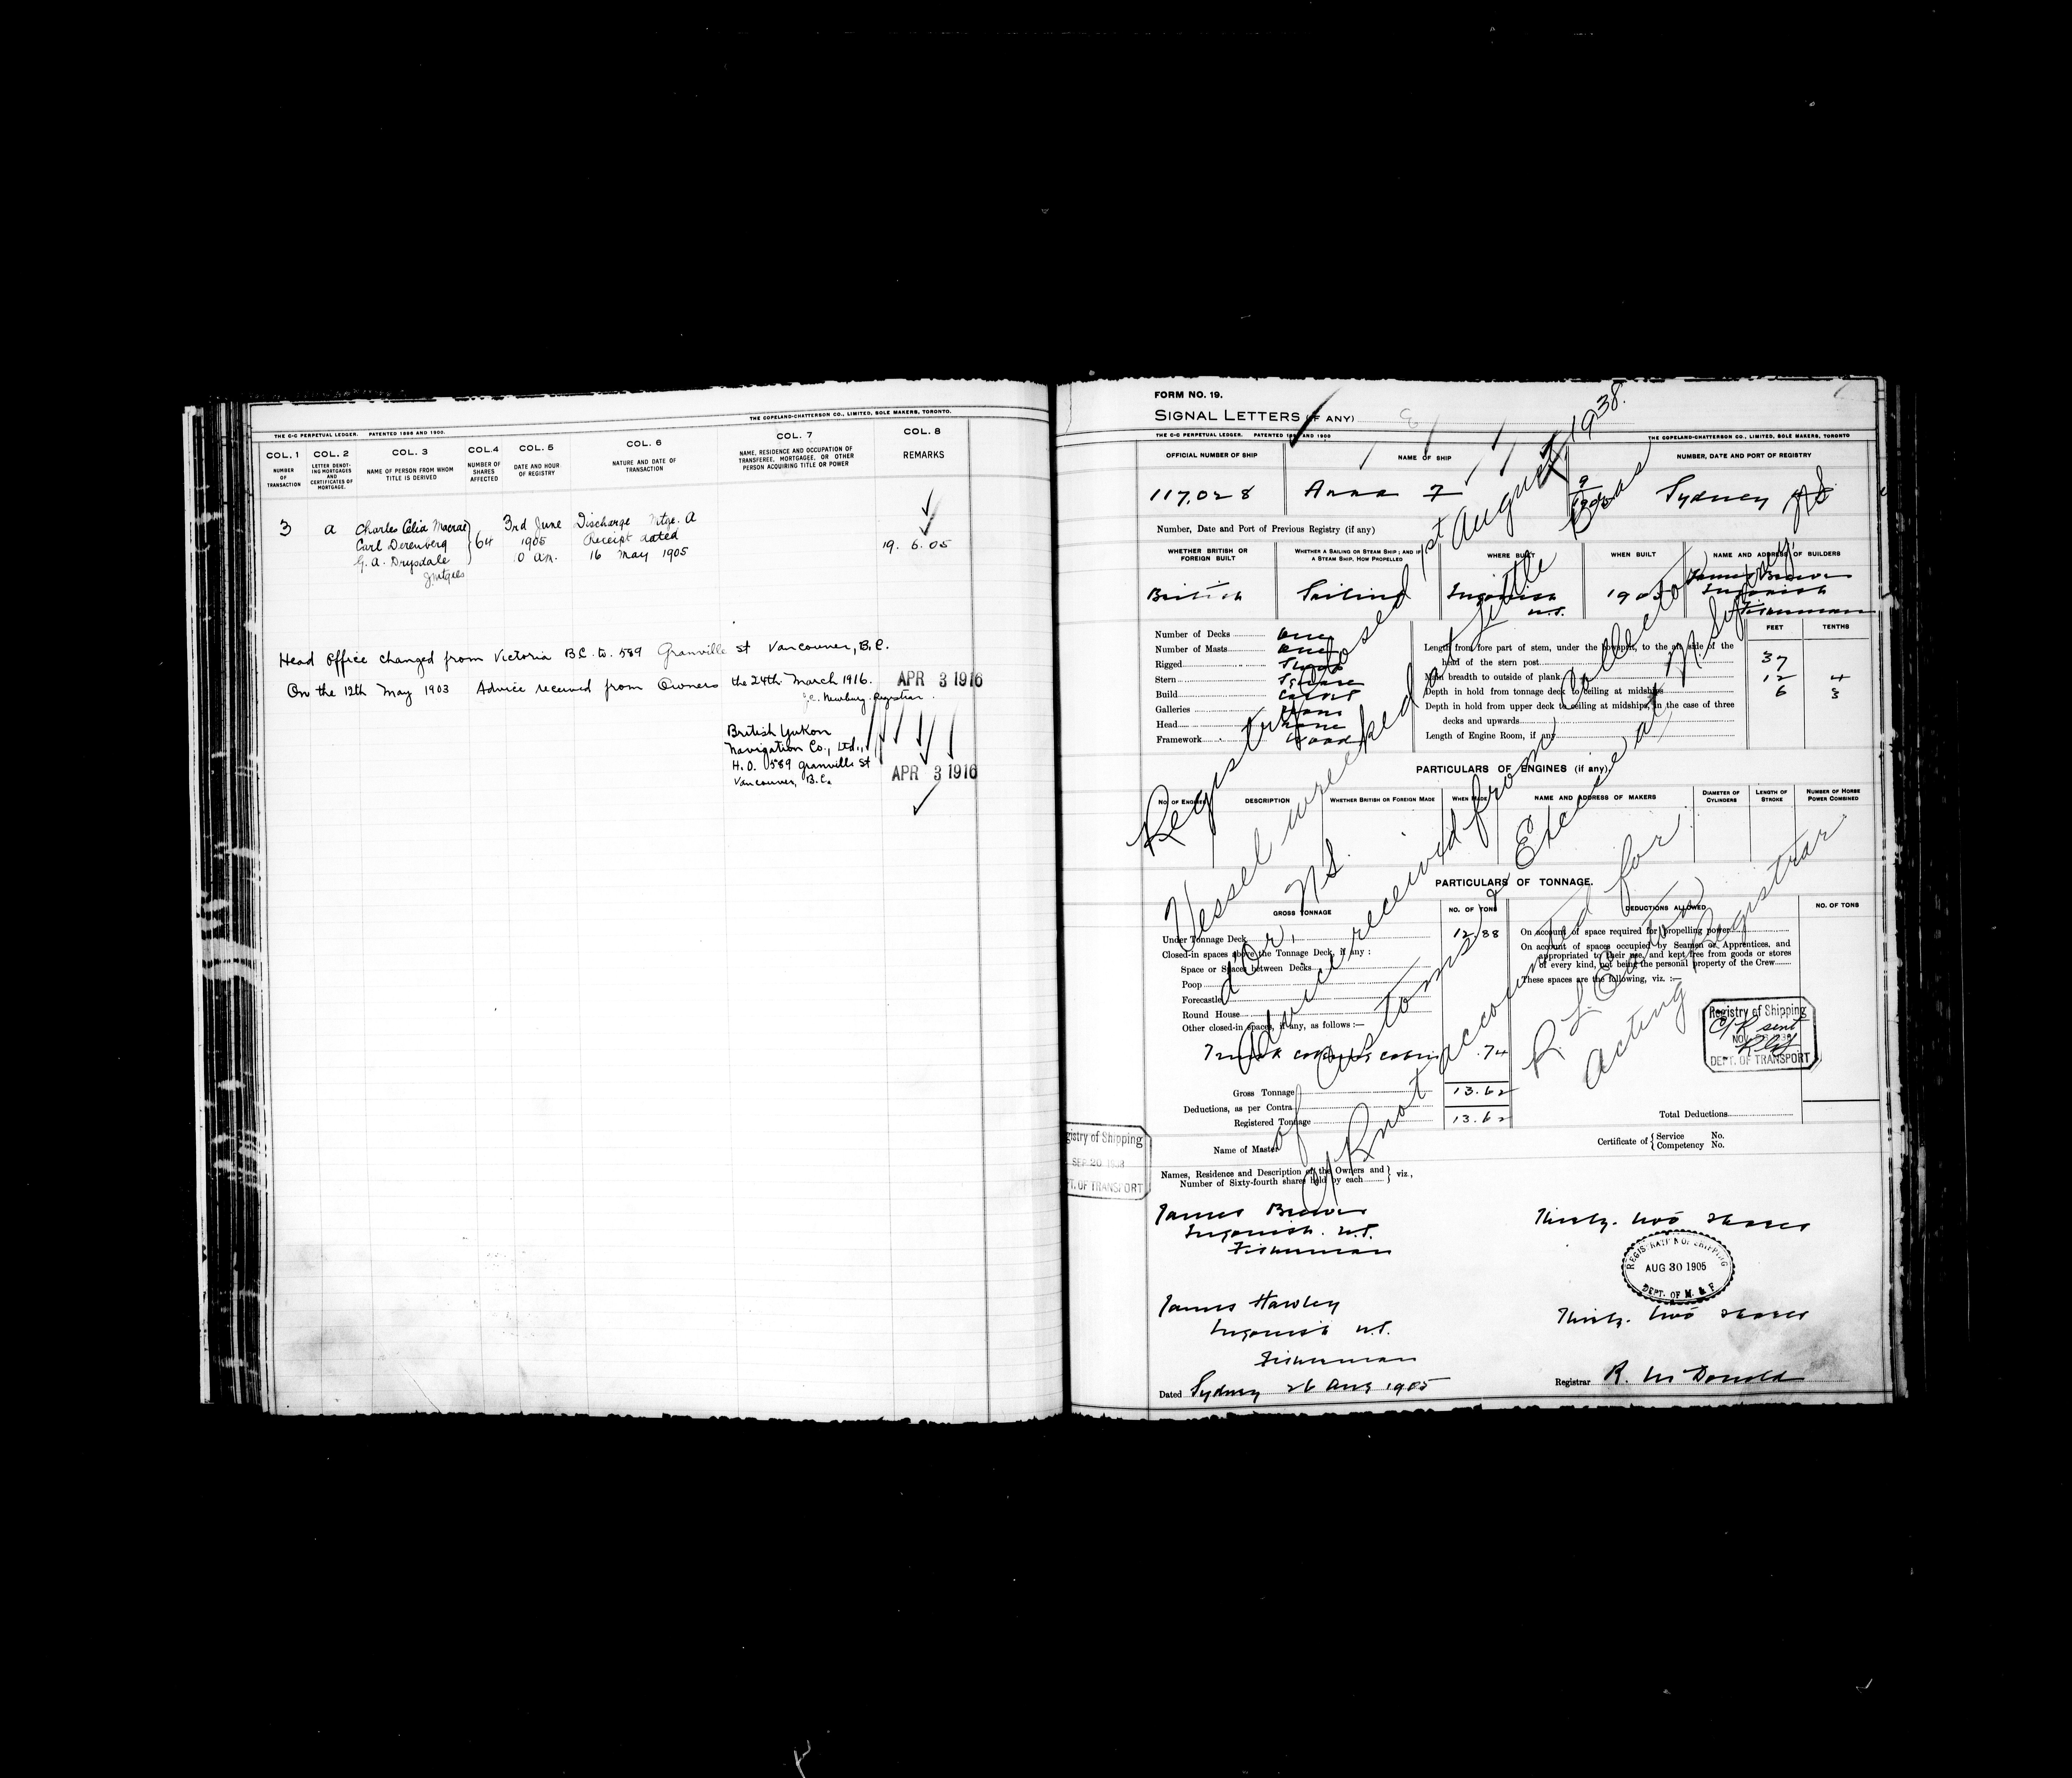 THE C-C PERPETUAL LEDGER. PATENTED 1896 AND 1900.
THE COPELAND-CHATTERSON CO., LIMITED, SOLE MAKERS, TORONTO.
COL. 1 COL. 2 COL. 3 COL. 4 COL. 5 COL. 6 COL. 7 COL. 8
NUMBER OF TRANSACTION
LETTER DENOTING MORTGAGES AND CERTIFICATES OF MORTGAGE.
NAME OF PERSON FROM WHOM TITLE IS DERIVED
NUMBER OF SHARES AFFECTED
DATE AND HOUR OF REGISTRY
NATURE AND DATE OF TRANSACTION
NAME, RESIDENCE AND OCCUPATION OF TRANSFEREE, MORTGAGEE, OR OTHER PERSON ACQUIRING TITLE OR POWER
REMARKS
3 a Charles Colin Macrae 3rd June Discharge Mtge. A
Carl Derenberg 64 1905 Receipt dated 19. 6. 05
G. A. Drysdale 10 am. 16 May 1905
Jmtgees
Head Office changed from Victoria B.C. to 589 Granville St Vancouver, B.C.
On the 12th May 1903 Advice received from Owners the 24th March 1916. APR 3 1916
J.C. Newbury Registrar.
British Yukon
Navigation Co., Ltd.,
H.O. 589 Granville St
Vancouver, B.C. APR 3 1916
FORM NO. 19.
SIGNAL LETTERS (IF ANY)
THE C-C PERPETUAL LEDGER. PATENTED 1896 AND 1900
THE COPELAND-CHATTERSON CO., LIMITED, SOLE MAKERS, TORONTO
OFFICIAL NUMBER OF SHIP NAME OF SHIP NUMBER, DATE AND PORT OF REGISTRY
117,028 Anna 7 9/1905 Sydney NS
Number, Date and Port of Previous Registry (if any)
WHETHER BRITISH OR FOREIGN BUILT
WHETHER A SAILING OR STEAM SHIP; AND IF A STEAM SHIP, HOW PROPELLED
WHERE BUILT
WHEN BUILT
NAME AND ADDRESS OF BUILDERS
British Sailing Ingonish N.S. 1905 James Brewer
Ingonish
Fisherman
FEET TENTHS
Number of Decks One
Number of Masts One
Rigged Sloop
Stern Square
Build Carvel
Galleries None
Head None
Framework Wood
Length from fore part of stem, under the bowsprit, to the aft side of the
head of the stern post 37
Main breadth to outside of plank 12 4
Depth in hold from tonnage deck to ceiling at midships 6 3
Depth in hold from upper deck to ceiling at midships, in the case of three
decks and upwards
Length of Engine Room, if any
PARTICULARS OF ENGINES (if any).
NO. OF ENGINES DESCRIPTION WHETHER BRITISH OR FOREIGN MADE WHEN MADE NAME AND ADDRESS OF MAKERS DIAMETER OF CYLINDERS LENGTH OF STROKE NUMBER OF HORSE POWER COMBINED
PARTICULARS OF TONNAGE.
GROSS TONNAGE NO. OF TONS DEDUCTIONS ALLOWED NO. OF TONS
Under Tonnage Deck 12.88
Closed-in spaces above the Tonnage Deck, if any :
Space or Spaces between Decks
Poop
Forecastle
Round House
Other closed-in spaces, if any, as follows :—
.74
Gross Tonnage 13.62
Deductions, as per Contra
Registered Tonnage 13.62
On account of space required for propelling power
On account of spaces occupied by Seamen or Apprentices, and
appropriated to their use, and kept free from goods or stores
of every kind, not being the personal property of the Crew
These spaces are the following, viz. :—
Total Deductions
Registry of Shipping
C/R sent
DEPT. OF TRANSPORT
Name of Master
Certificate of { Service No.
Competency No.
Registry of Shipping
SEP 20 1938
DEPT. OF TRANSPORT
Names, Residence and Description of the Owners and
Number of Sixty-fourth shares held by each } viz.,
James Brewer Thirty-two shares
Ingonish N.S.
Fisherman
REGISTRATION OF SHIPPING
AUG 30 1905
DEPT. OF M. & F.
James Hawley Thirty-two shares
Ingonish N.S.
Fisherman
Dated Sydney 26 Aug 1905
Registrar R. McDonald
Registry closed 1st August, 1938.
Vessel wrecked at Little Bras
d'Or, NS.
Advice received from Collector
of Customs & Excise at N. Sydney,
C/R not accounted for
R. L. Eaton
Acting Registrar